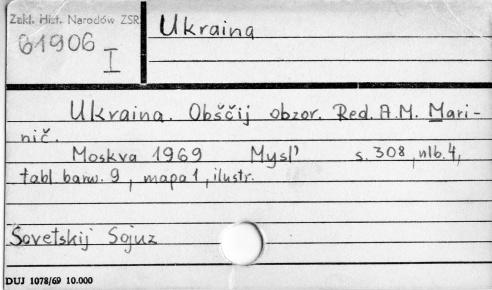 Zakł. Hist. Narodów ZSR
61906
I
Ukraina
Ukraina. Obščij obzor. Red. A.M. Mari-
nič.
Moskva 1969 Mysl' s. 308, nlb. 4,
tabl barw. 9, mapa 1, ilustr.
Sovetskij Sojuz
DUJ 1078/69 10.000